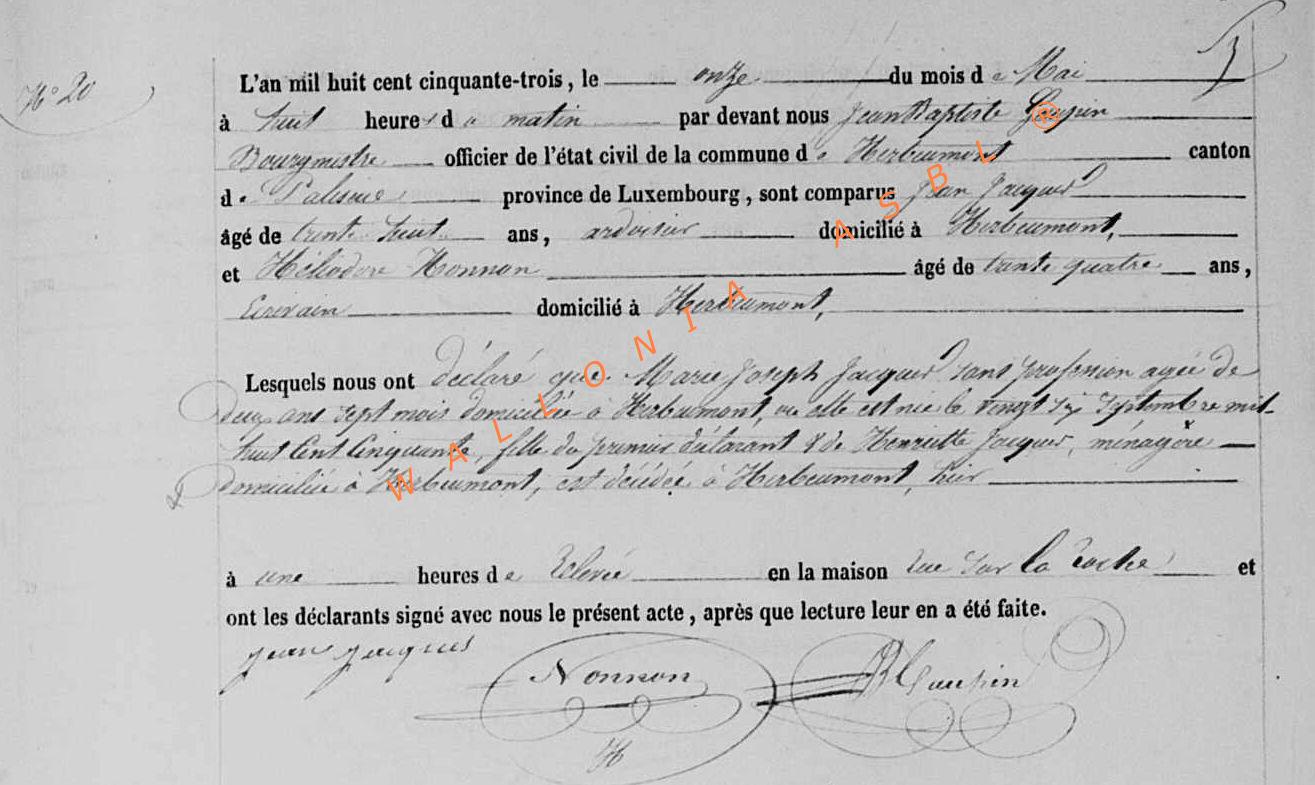 N° 20
L'an mil huit cent cinquante-trois, le onze du mois de Mai
à huit heures du matin par devant nous Jean Baptiste Gaupin
Bourgmestre officier de l'état civil de la commune de Herbeumont canton
de Paliseul province de Luxembourg, sont comparus Jean Jacques
âgé de trente huit ans, ardoisier domicilié à Herbeumont,
et Héliodore Nonnon âgé de trente quatre ans,
Ecrivain domicilié à Herbeumont,
Lesquels nous ont déclaré que Marie Joseph Jacques sans profession agée de
deux ans sept mois domiciliée à Herbeumont, où elle est née le vingt six Septembre mil
huit Cent Cinquante, fille du premier déclarant & de Henriette Jacques, ménagère
domiciliée à Herbeumont, est décédée à Herbeumont, hier
à une heures de relevée en la maison rue sur la roche et
ont les déclarants signé avec nous le présent acte, après que lecture leur en a été faite.
Jean Jacques
Nonnon
JB Gaupin
H
WALLONIA ASBL ®